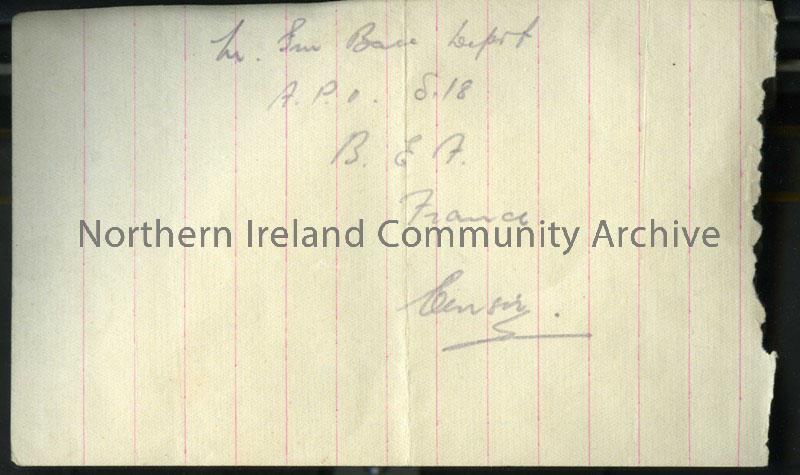 Base Depot
A.P.O. S.18
B. E F.
France
Northern Ireland Community Archive
Censor.